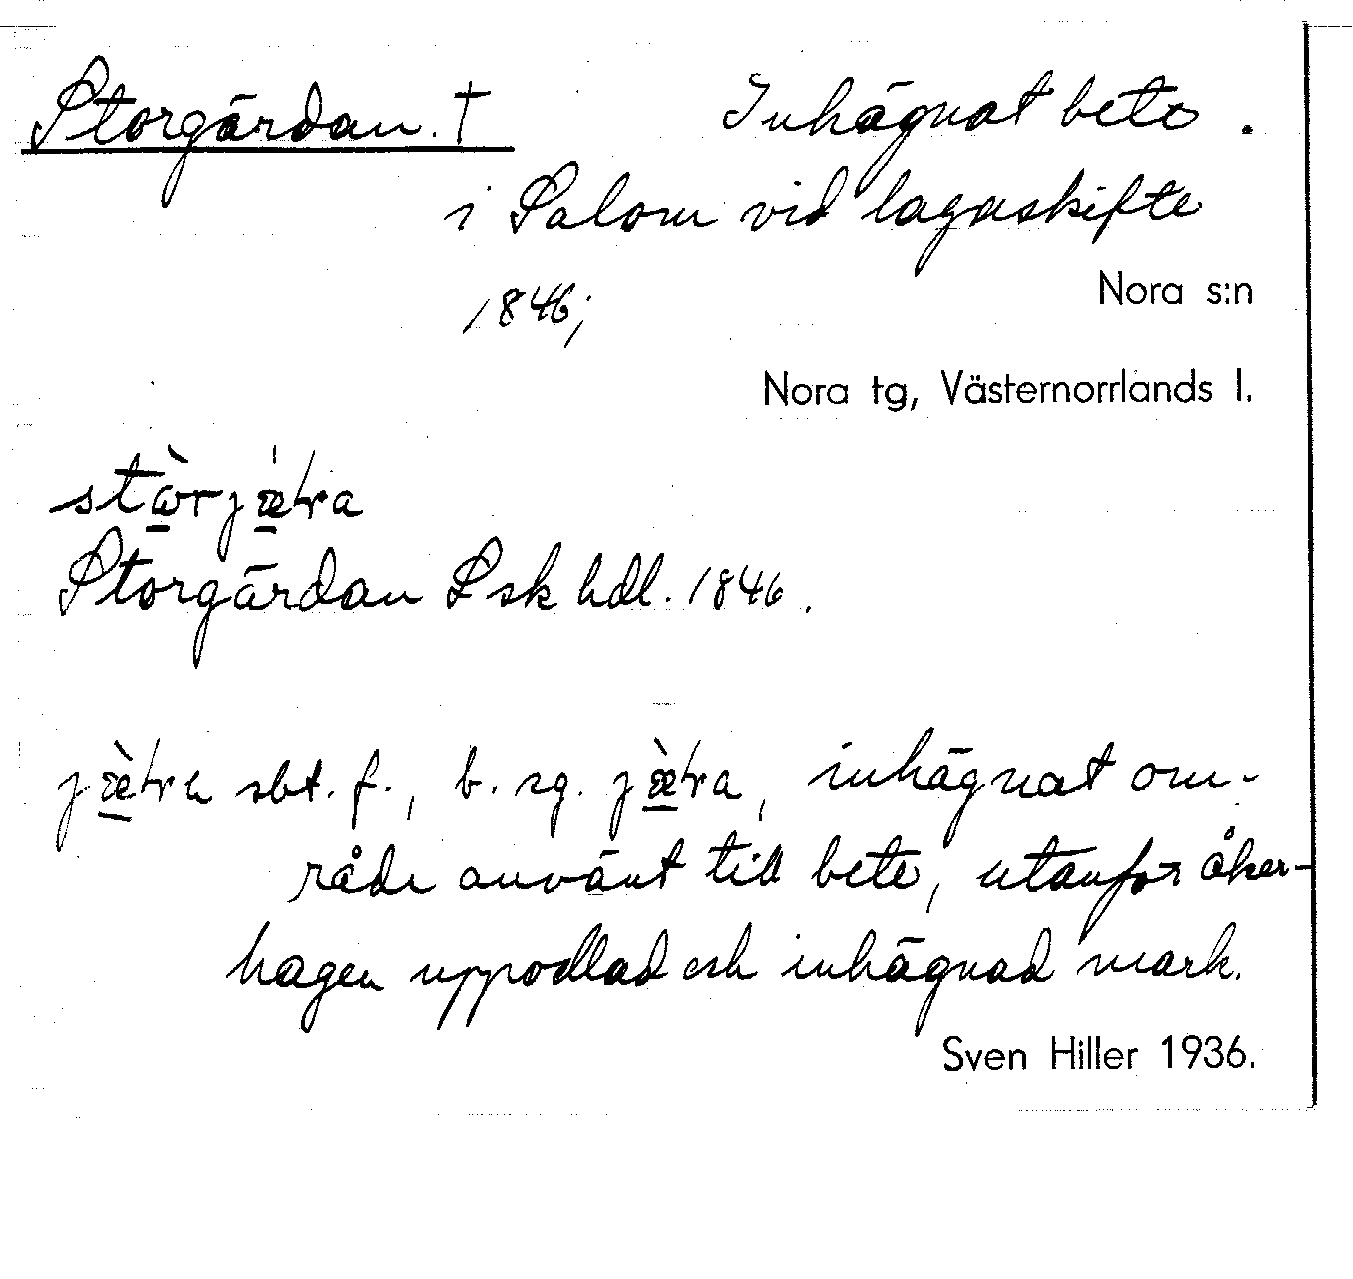 Storgärdan. † Inhägnat bete.
i Salom vid lagaskifte
1846;
Nora s:n
Nora tg, Västernorrlands l.
Storgärdan Lsk hdl. 1846.
sbt. f., b. sg. inhägnat om-
råde använt till bete, utanför åker-
hagen uppodlad och inhägnad mark.
Sven Hiller 1936.